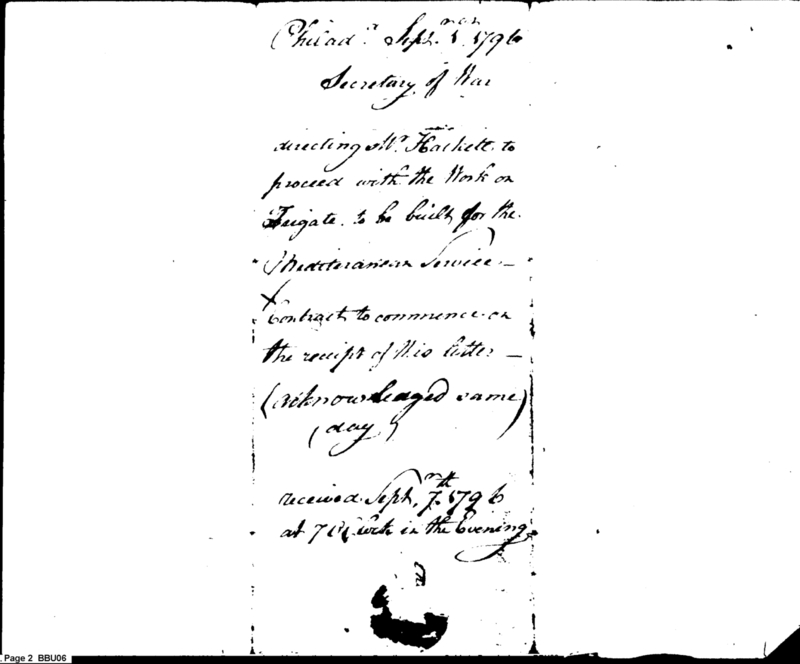 Philad.ª Sepr. 1. 1796
Secretary of War
directing Mr. Hackett to
proceed with the Work on
Frigate to be built for the
Mediteranean Service —
Contract to commence on
the receipt of this letter —
(acknowledged same
day)
received Sept. 7th 1796
at 7 OClock in the Evening
Page 2 BBU06